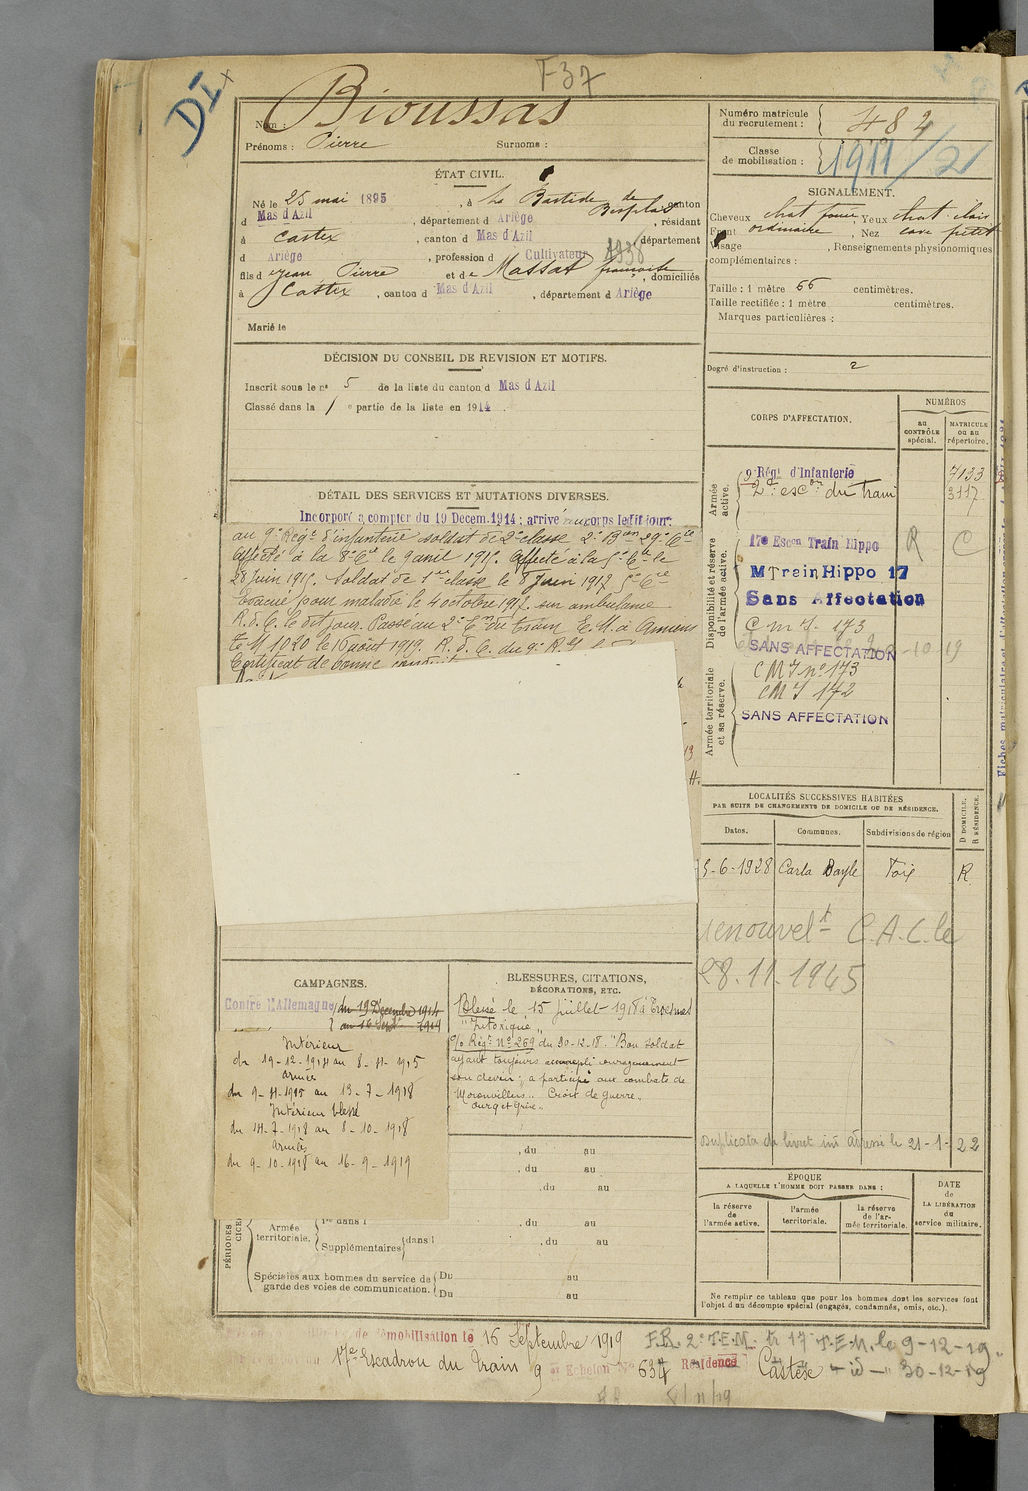 F37
DI
Nom : Bioussas
Prénoms : Pierre Surnoms :
ÉTAT CIVIL.
Né le 25 mai 1895, à La Bastide de Besplas canton
d Mas d'Azil, département d Ariège, résidant
à Castex, canton d Mas d'Azil, département
d Ariège, profession d Cultivateur 1938
fils d e Jean Pierre et de Massat françoise, domiciliés
à Castex, canton d Mas d'Azil, département d Ariège
Marié le
DÉCISION DU CONSEIL DE REVISION ET MOTIFS.
Inscrit sous le n° 5 de la liste du canton d Mas d'Azil
Classé dans la 1 e partie de la liste en 1914.
DÉTAIL DES SERVICES ET MUTATIONS DIVERSES.
Incorporé à compter du 19 Décem. 1914 ; arrivé au corps ledit jour.
au 9e Régt d'infanterie soldat de 2e classe 2e Bon 29e Cie
Affecté à la 8e Cie le 9 avril 1915. Affecté à la 5e Cie le
28 juin 1915. Soldat de 1ere classe le 8 juin 1917 5e Cie
Evacué pour maladie le 4 octobre 1917. sur ambulance
R.d.C. le dit jour. Passé au 2e Eon du train E.M. à Amiens
te M 1020 le 16 août 1919. R.d.C. du 9e R.I.
Certificat de bonne conduite
CAMPAGNES.
Contre l'Allemagne du 19 Décembre 1914
au 16 Sept 1919
Intérieur
du 19-12-1914 au 8-4-1915
armées
du 9-4-1915 au 13-7-1918
Intérieur blessé
du 14-7-1918 au 8-10-1918
armées
du 9-10-1918 au 16-9-1919
BLESSURES, CITATIONS,
DÉCORATIONS, ETC.
Blessé le 15 juillet 1918 à
"Intoxiqué"
o/o Régt N° 269 du 30-12-18. "Bon soldat
ayant toujours accompli courageusement
son devoir ; a participé aux combats de
Moronvillers". Croix de guerre.
PÉRIODES
Armée territoriale.
1re dans l
Supplémentaires dans l
, du au
, du au
, du au
, du au
, du au
Spéciales aux hommes du service de garde des voies de communication.
Du au
Du au
de démobilisation le 16 Septembre 1919
17e Escadron du Train 9
Echelon N° 634 Résidence Castex
F.R. 2e T.E.M. tr 17e T.E.M. le 9-12-19.
- id - 30-12-19
Numéro matricule
du recrutement : 482
Classe
de mobilisation : 1911/21
SIGNALEMENT.
Cheveux chat foncé Yeux chat. clair
Front ordinaire, Nez cave petit
Visage , Renseignements physionomiques
complémentaires :
Taille : 1 mètre 66 centimètres.
Taille rectifiée : 1 mètre centimètres.
Marques particulières :
Degré d'instruction : 2
CORPS D'AFFECTATION.
NUMÉROS
au CONTRÔLE spécial.
MATRICULE ou au répertoire.
Armée active.
9e Régt d'Infanterie 7133
2e escon du train 3117
Disponibilité et réserve de l'armée active.
17e Escon Train Hippo R C
M Train Hippo 17
Sans Affectation
C m I. 173
SANS AFFECTATION
Armée territoriale et sa réserve.
C M I n° 173
C M I 172
SANS AFFECTATION
LOCALITÉS SUCCESSIVES HABITÉES
PAR SUITE DE CHANGEMENTS DE DOMICILE OU DE RÉSIDENCE.
Dates. Communes. Subdivisions de région
D DOMICILE.
R RÉSIDENCE.
5-6-1928 Carla Bayle Foix R
renouvelt C.A.C. le
28.11.1945
Duplicata du livret ind adressé le 21-1-22
ÉPOQUE
A LAQUELLE L'HOMME DOIT PASSER DANS :
DATE
de
LA LIBÉRATION
du
service militaire.
la réserve de l'armée active.
l'armée territoriale.
la réserve de l'armée territoriale.
Ne remplir ce tableau que pour les hommes dont les services font
l'objet d'un décompte spécial (engagés, condamnés, omis, etc.).